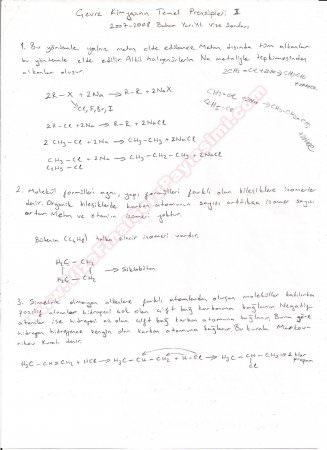 Çevre Kimyasının Temel Prensipleri II
2007-2008 Bahar Yarıyılı Vize Soruları
1. Bu yöntemle yalnız metan elde edilemez. Metan dışında tüm alkanlar
bu yöntemle elde edilir. Alkil halojenürlerin Na metaliyle tepkimesinden
alkanlar oluşur.
2R-X + 2Na → R-R + 2NaX
Cl, F, Br, I
2R-Cl + 2Na → R-R + 2NaCl
2 CH3-Cl + 2Na → CH3-CH3 + 2NaCl
CH3-Cl
C2H5-Cl + 2Na → CH3-CH2-CH3 + 2NaCl
2. Molekül formülleri aynı, yapı formülleri farklı olan bileşiklere izomerler
denir. Organik bileşiklerde karbon atomunun sayısı arttıkça izomer sayısı
artar. Metan ve etanın izomeri yoktur.
Bütenin (C4H8) halka izomeri vardır.
H2C - CH2
H2C - CH2 → Siklobütan
3. Simetrik olmayan alkenlere farklı atomlardan oluşan moleküller katılırken
pozitif atomlar hidrojeni çok olan çift bağ karbonuna bağlanır. Negatif
atomlar ise hidrojeni az olan çift bağ karbon atomuna bağlanır. Buna göre
hidrojen hidrojence zengin olan karbon atomuna bağlanır. Bu kurala Markov-
nikov Kuralı denir.
H3C-CH=CH2 + HCl → H3C-CH-CH2 + H+Cl → H3C-CH-CH3 → 2 klor
Cl propan
www.HarunArsivPaylasimi.com